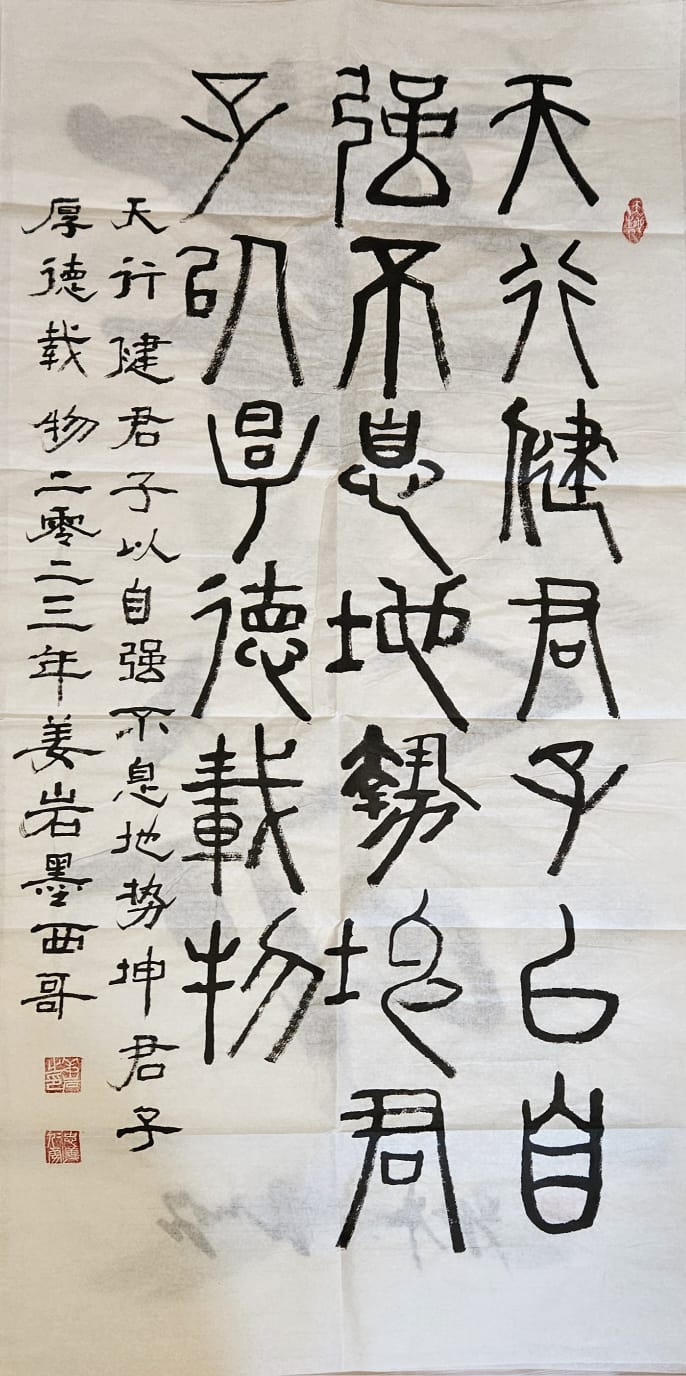 天行健君子㠯自
强不息地势坤君
子以厚德载物
天行健君子以自强不息地势坤君子
厚德载物二零二三年姜岩墨西哥